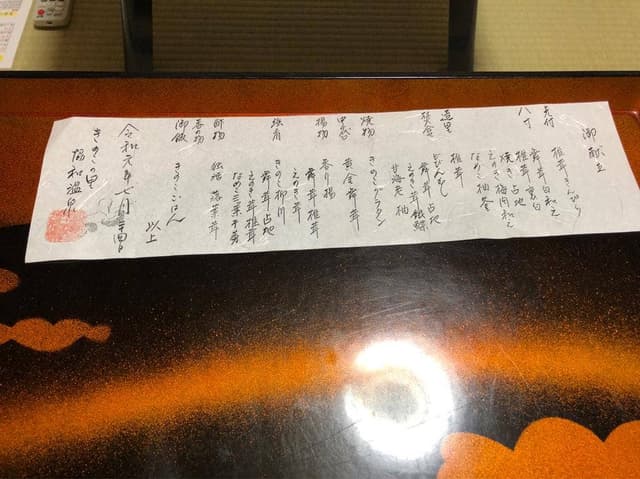 御献立
先付 椎茸きんぴら
八寸 舞茸白和え
椎茸 占地
焼き 梅肉和え
えのき
なめこ
造里 椎茸
どびんむし
舞茸 占地
えのき茸
甘海老 柚
焼物 きのこグラタン
中皿 黄金舞茸
揚物 香り揚
舞茸 椎茸
えのき茸
強肴 きのこ柳川
舞茸 占地
えのき茸 椎茸
なめこ 三葉 牛蒡
酢物 落葉茸
香の物
御飯 きのこごはん
以上
令和元年七月二十四日
きのこの里
協和温泉